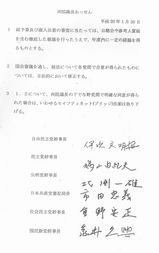 両院議長あっせん
平成20年1月30日
1 総予算及び歳入法案の審査に当たっては、公聴会や参考人質疑
を含む徹底した審議を行ったうえで、年度内に一定の結論を得
るものとする。
2 国会審議を通し、税法について各党間で合意が得られたものに
ついては、立法府において修正する。
3 1、2について、両院議長の下で与野党間で明確な同意が得ら
れた場合は、いわゆるセイフティネット(ブリッジ)法案は取り下
げる。
自由民主党幹事長 伊吹文明
民主党幹事長 鳩山由紀夫
公明党幹事長 北側一雄
日本共産党書記局長 市田忠義
社会民主党幹事長 重野安正
国民新党幹事長 亀井久興